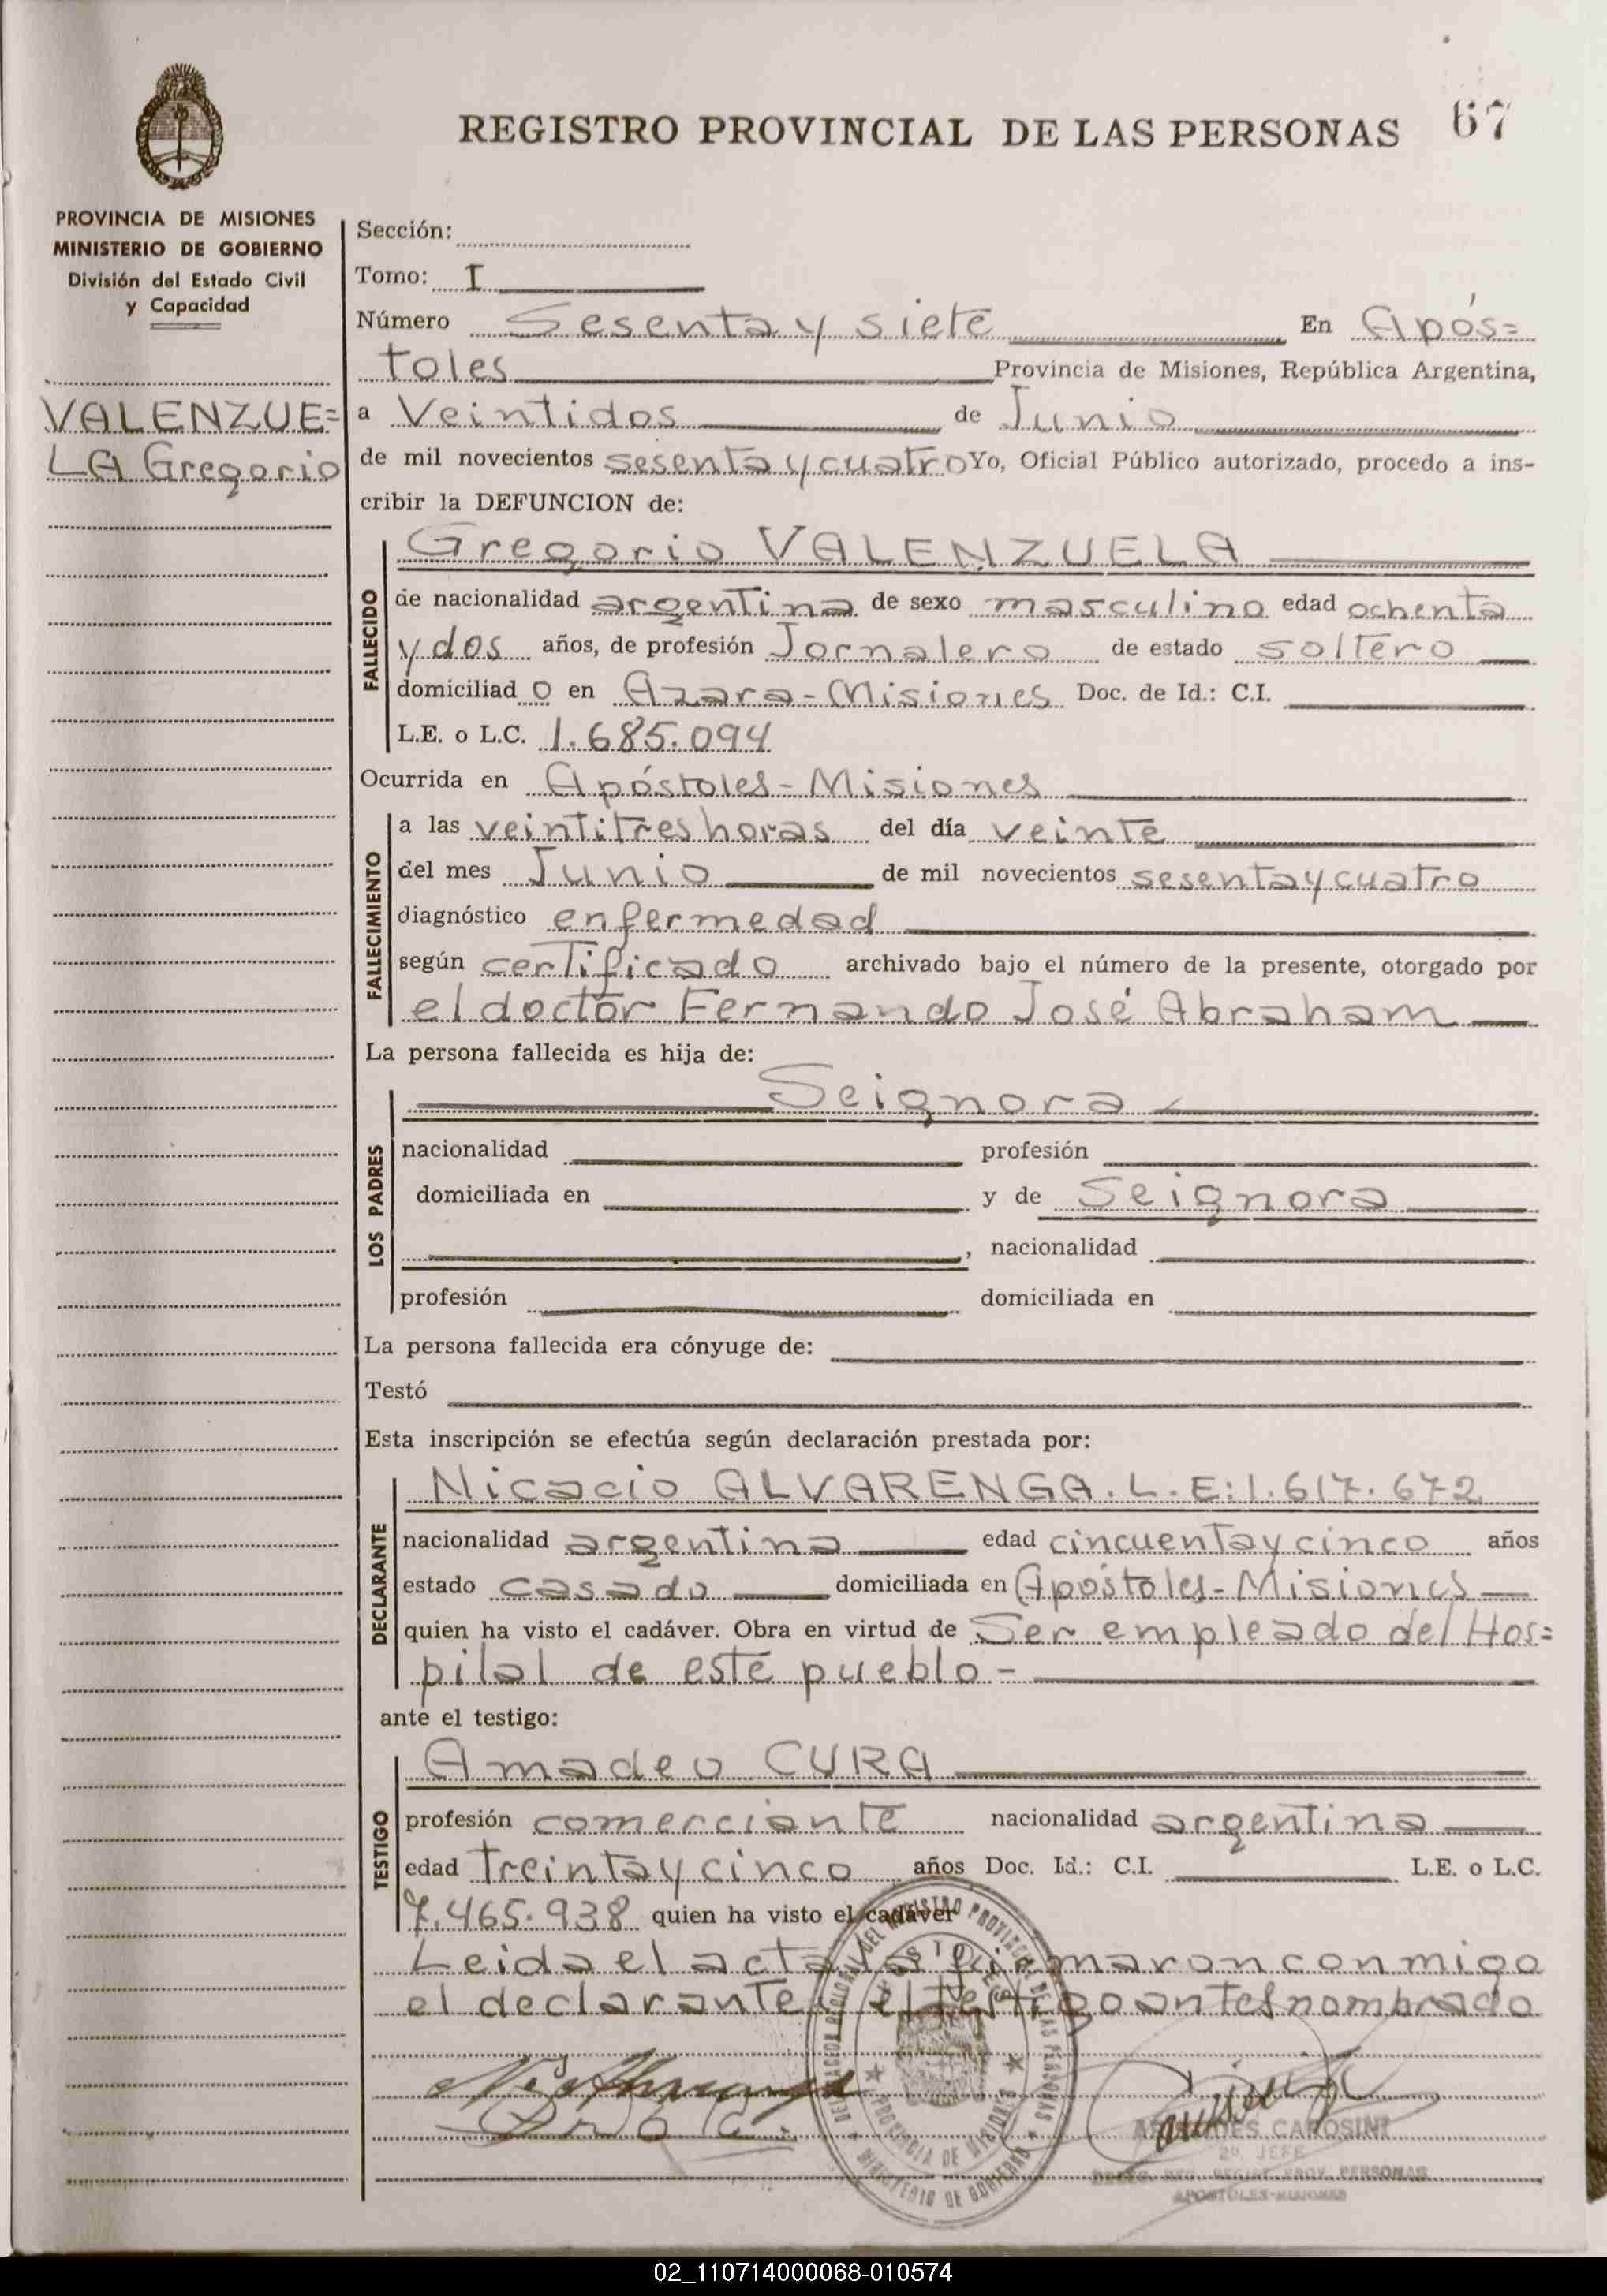 REGISTRO PROVINCIAL DE LAS PERSONAS 67
PROVINCIA DE MISIONES
MINISTERIO DE GOBIERNO
División del Estado Civil
y Capacidad
VALENZUE=
LA Gregorio
Sección:
Tomo: I
Número Sesenta y siete En Após=
toles Provincia de Misiones, República Argentina,
a Veintidos de Junio
de mil novecientos sesenta y cuatro Yo, Oficial Público autorizado, procedo a ins-
cribir la DEFUNCION de:
FALLECIDO
Gregorio VALENZUELA
de nacionalidad argentina de sexo masculino edad ochenta
y dos años, de profesión Jornalero de estado soltero
domiciliad o en Azara - Misiones Doc. de Id.: C.I.
L.E. o L.C. 1.685.094
Ocurrida en Apóstoles - Misiones
FALLECIMIENTO
a las veintitres horas del día veinte
del mes Junio de mil novecientos sesenta y cuatro
diagnóstico enfermedad
según certificado archivado bajo el número de la presente, otorgado por
el doctor Fernando José Abraham
La persona fallecida es hija de:
LOS PADRES
Seignora
nacionalidad profesión
domiciliada en y de Seignora
, nacionalidad
profesión domiciliada en
La persona fallecida era cónyuge de:
Testó
Esta inscripción se efectúa según declaración prestada por:
DECLARANTE
Nicacio ALVARENGA. L.E: 1.617.672
nacionalidad argentina edad cincuenta y cinco años
estado casado domiciliada en Apóstoles - Misiones
quien ha visto el cadáver. Obra en virtud de Ser empleado del Hos=
pital de este pueblo -
ante el testigo:
TESTIGO
Amadeo CURA
profesión comerciante nacionalidad argentina
edad treinta y cinco años Doc. Id.: C.I. L.E. o L.C.
7.465.938 quien ha visto el cadáver
Leida el acta la firmaron conmigo
el declarante y el testigo antes nombrado
DELEGACION REGIONAL DEL REGISTRO PROVINCIAL DE LAS PERSONAS
APOSTOLES
PROVINCIA DE MISIONES
MINISTERIO DE GOBIERNO
CAROSINI
2º. JEFE
PERSONAS
APOSTOLES-MISIONES
02_110714000068-010574